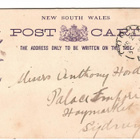 NEW SOUTH WALES
POST CARD
THE ADDRESS ONLY TO BE WRITTEN ON THIS SIDE.
Messrs Anthony Hord
Palace Emporium
Haymarket
Sydney